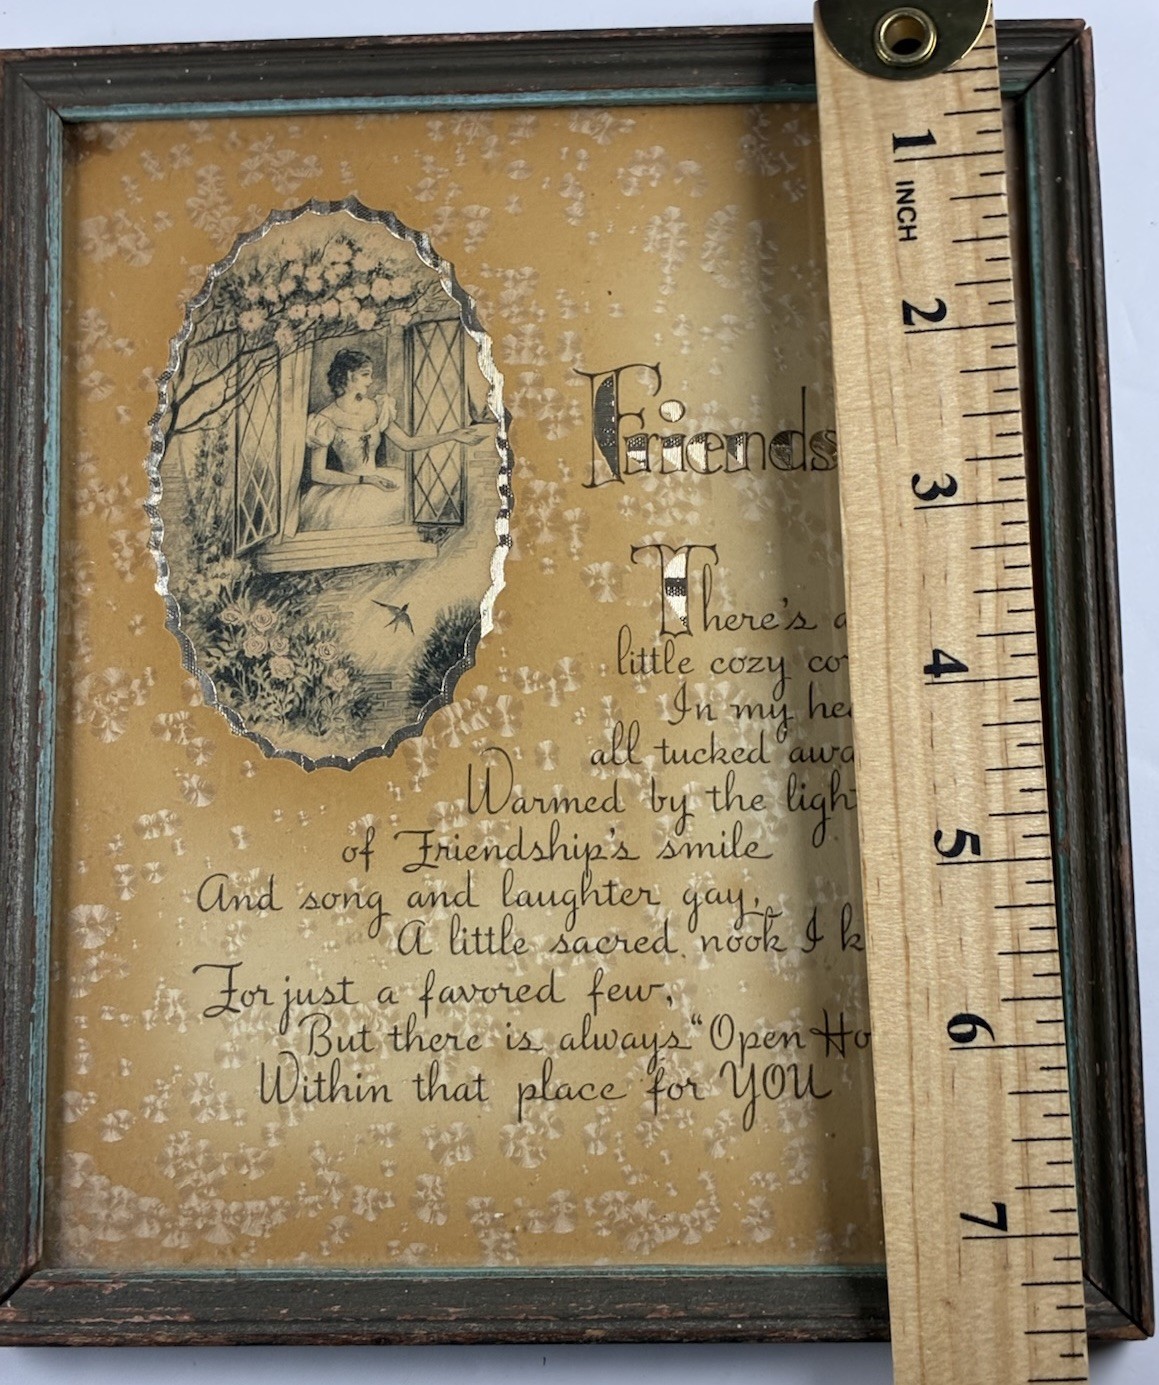 Friends
There's a
little cozy co
In my hea
all tucked awa
Warmed by the light
of Friendship's smile
And song and laughter gay,
A little sacred nook I k
For just a favored few,
But there is always "Open Ho
Within that place for YOU
1
INCH
2
3
4
5
6
7